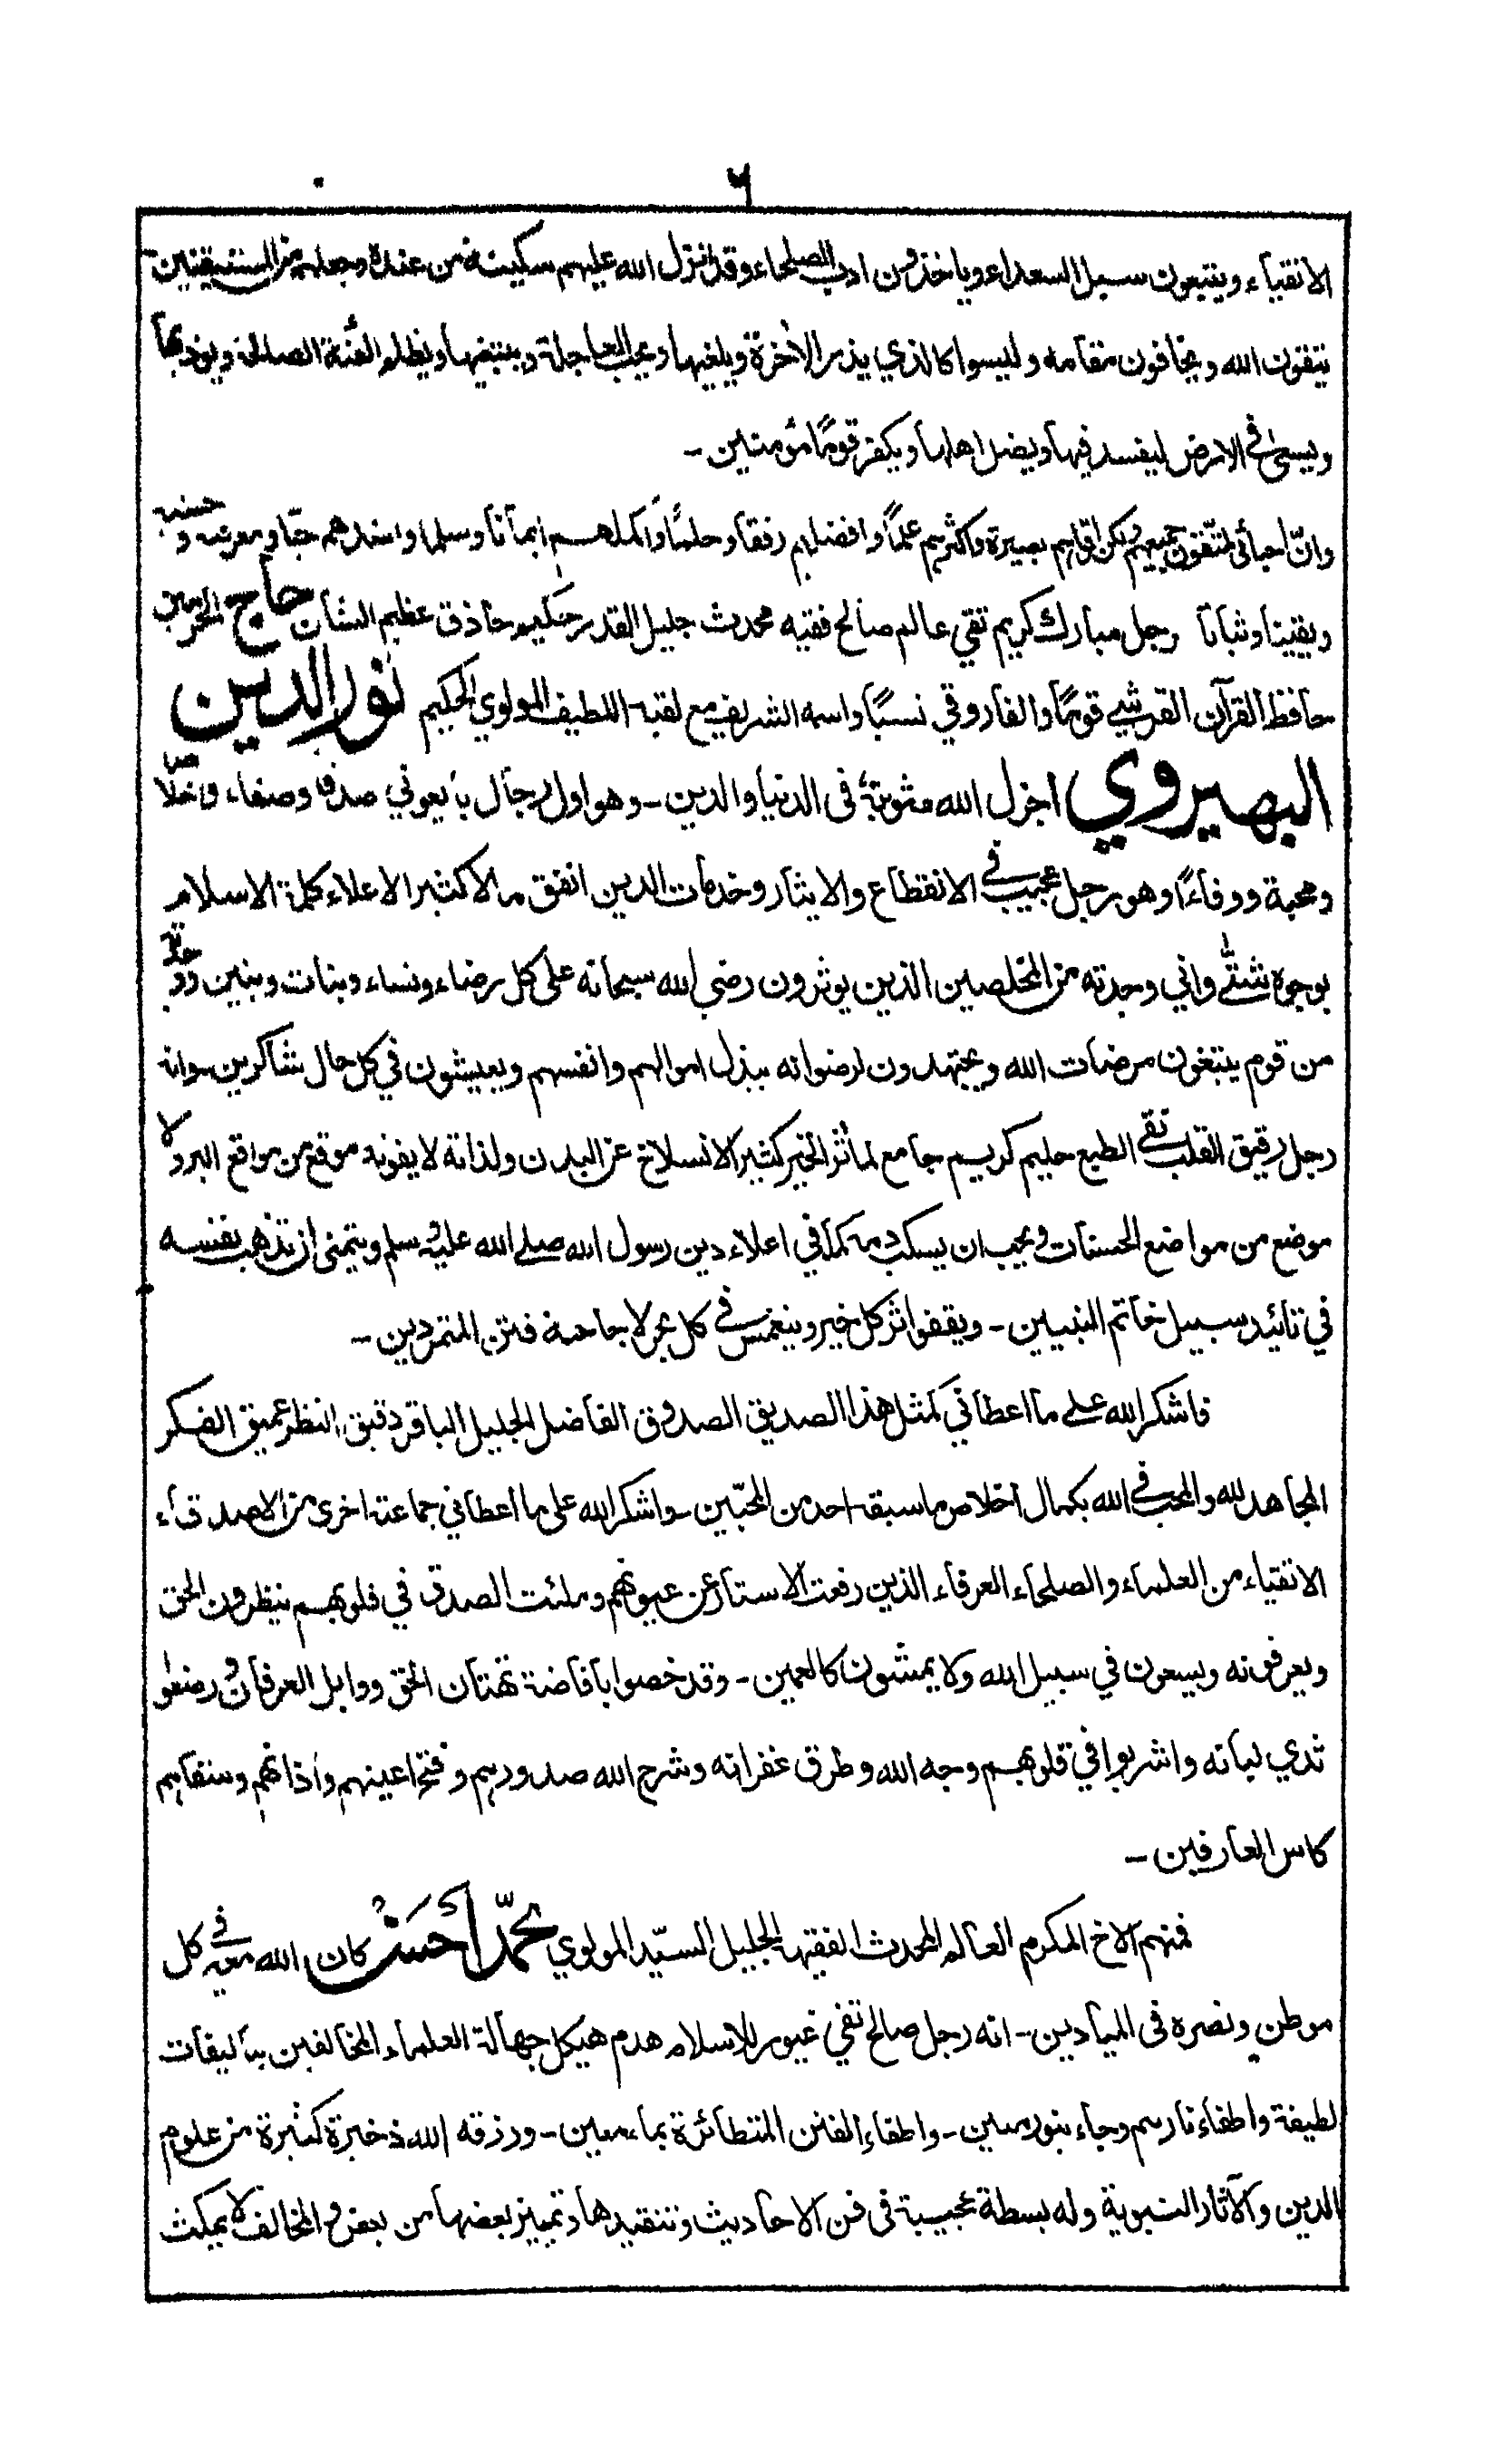 ٦
الاتقياء ويتبعون سبيل السعداء وياخذون ادب الصلحاء وقد انزل الله عليهم سكينة من عنده وجعلهم من المستيقنين
يتقون الله ويخافون مقامه وليسوا كالذي يذر الآخرة ويلغيها ويحب العاجلة ويبتغيها ويظلم الفئة الصالحة ويوذيها
ويسعى في الارض ليفسد فيها ويضل اهلها ويكفر قومًا مؤمنين -
وانّ احبائي متّقون جميعهم ولكن اقواهم بصيرة واكثرهم علمًا وافضلهم رفقًا وحلمًا واكملهم ايمانًا وسلما واشدهم حبّا ومعرفة وخشية
ويقينا وثباتا رجل مبارك كريم تقي عالم صالح فقيه محدث جليل القدر حكيم حاذق عظيم الشان حاج الحرمين
حافظ القرآن القرشي قومًا والفاروقي نسبًا واسمه الشريف مع لقبه اللطيف المولوي الحكيم نور الدين
البهيروي اجزل الله مثوبته في الدنيا والدين - وهو اول رجال بايعوني صدقا وصفاء واخلاصا
ومحبة ووفاءً وهو رجل عجيب في الانقطاع والايثار وخدمات الدين انفق مالا كثيرا لاعلاء كلمة الاسلام
بوجوه شتّٰى واني وجدته من المخلصين الذين يوثرون رضي الله سبحانه على كل رضاء ونساء وبنات وبنين ووجدته
من قوم يبتغون مرضات الله ويجتهدون لرضوانه ببذل اموالهم وانفسهم ويعيشون في كل حال شاكرين - وانه
رجل رقيق القلب نقي الطبع حليم كريم جامع لمآثر الخير كثير الانسلاخ عن البدن ولذاته لا يفوته موقع من مواقع البر ولا
موضع من مواضع الحسنات ويحب ان يسكب دمه كماء في اعلاء دين رسول الله صلے الله عليه وسلم ويتمنى ان تذهب نفسه
في تائيد سبيل خاتم النبيين - ويقفوا اثر كل خير وينغمس في كل بحر لاجاحة فتن المتمردين -
فاشكر الله على ما اعطاني كمثل هذا الصديق الصدوق الفاضل الجليل الباقر دقيق النظر عميق الفكر
المجاهد لله والمحب في الله بكمال اخلاص ما سبقه احد من المحبّين - واشكر الله على ما اعطاني جماعة اخرى من الاصدقاء
الاتقياء من العلماء والصلحاء العرفاء الذين رفعت الاستار عن عيونهم وملئت الصدق في قلوبهم ينظرون الحق
ويعرفونه ويسعون في سبيل الله ولا يمشون كالعمين - وقد خصوا بافاضة تهتان الحق ووابل العرفان ورضعوا
ثدي لبانه واشربوا في قلوبهم وجه الله وطرق غفرانه وشرح الله صدورهم وفتح اعينهم وأذانهم وسقاهم
كاس العارفين -
فمنهم الاخ المكرم العالم المحدث الفقيه الجليل السيّد المولوي محمّد أحسن كان الله معه في كل
موطن ونصره في الميادين - انه رجل صالح تقي غيور للاسلام هدم هيكل جهالة العلماء المخالفين بتاليفات
لطيفة واطفاء نارهم وجاء بنور مبين - واطفاء الفتن المتطائرة بماء معين - ورزقه الله ذخيرة كثيرة من علوم
الدين والآثار النبوية وله بسطة عجيبة في فن الاحاديث وتنقيدها وتمييز بعضها من بعض والمخالف لا يمكث